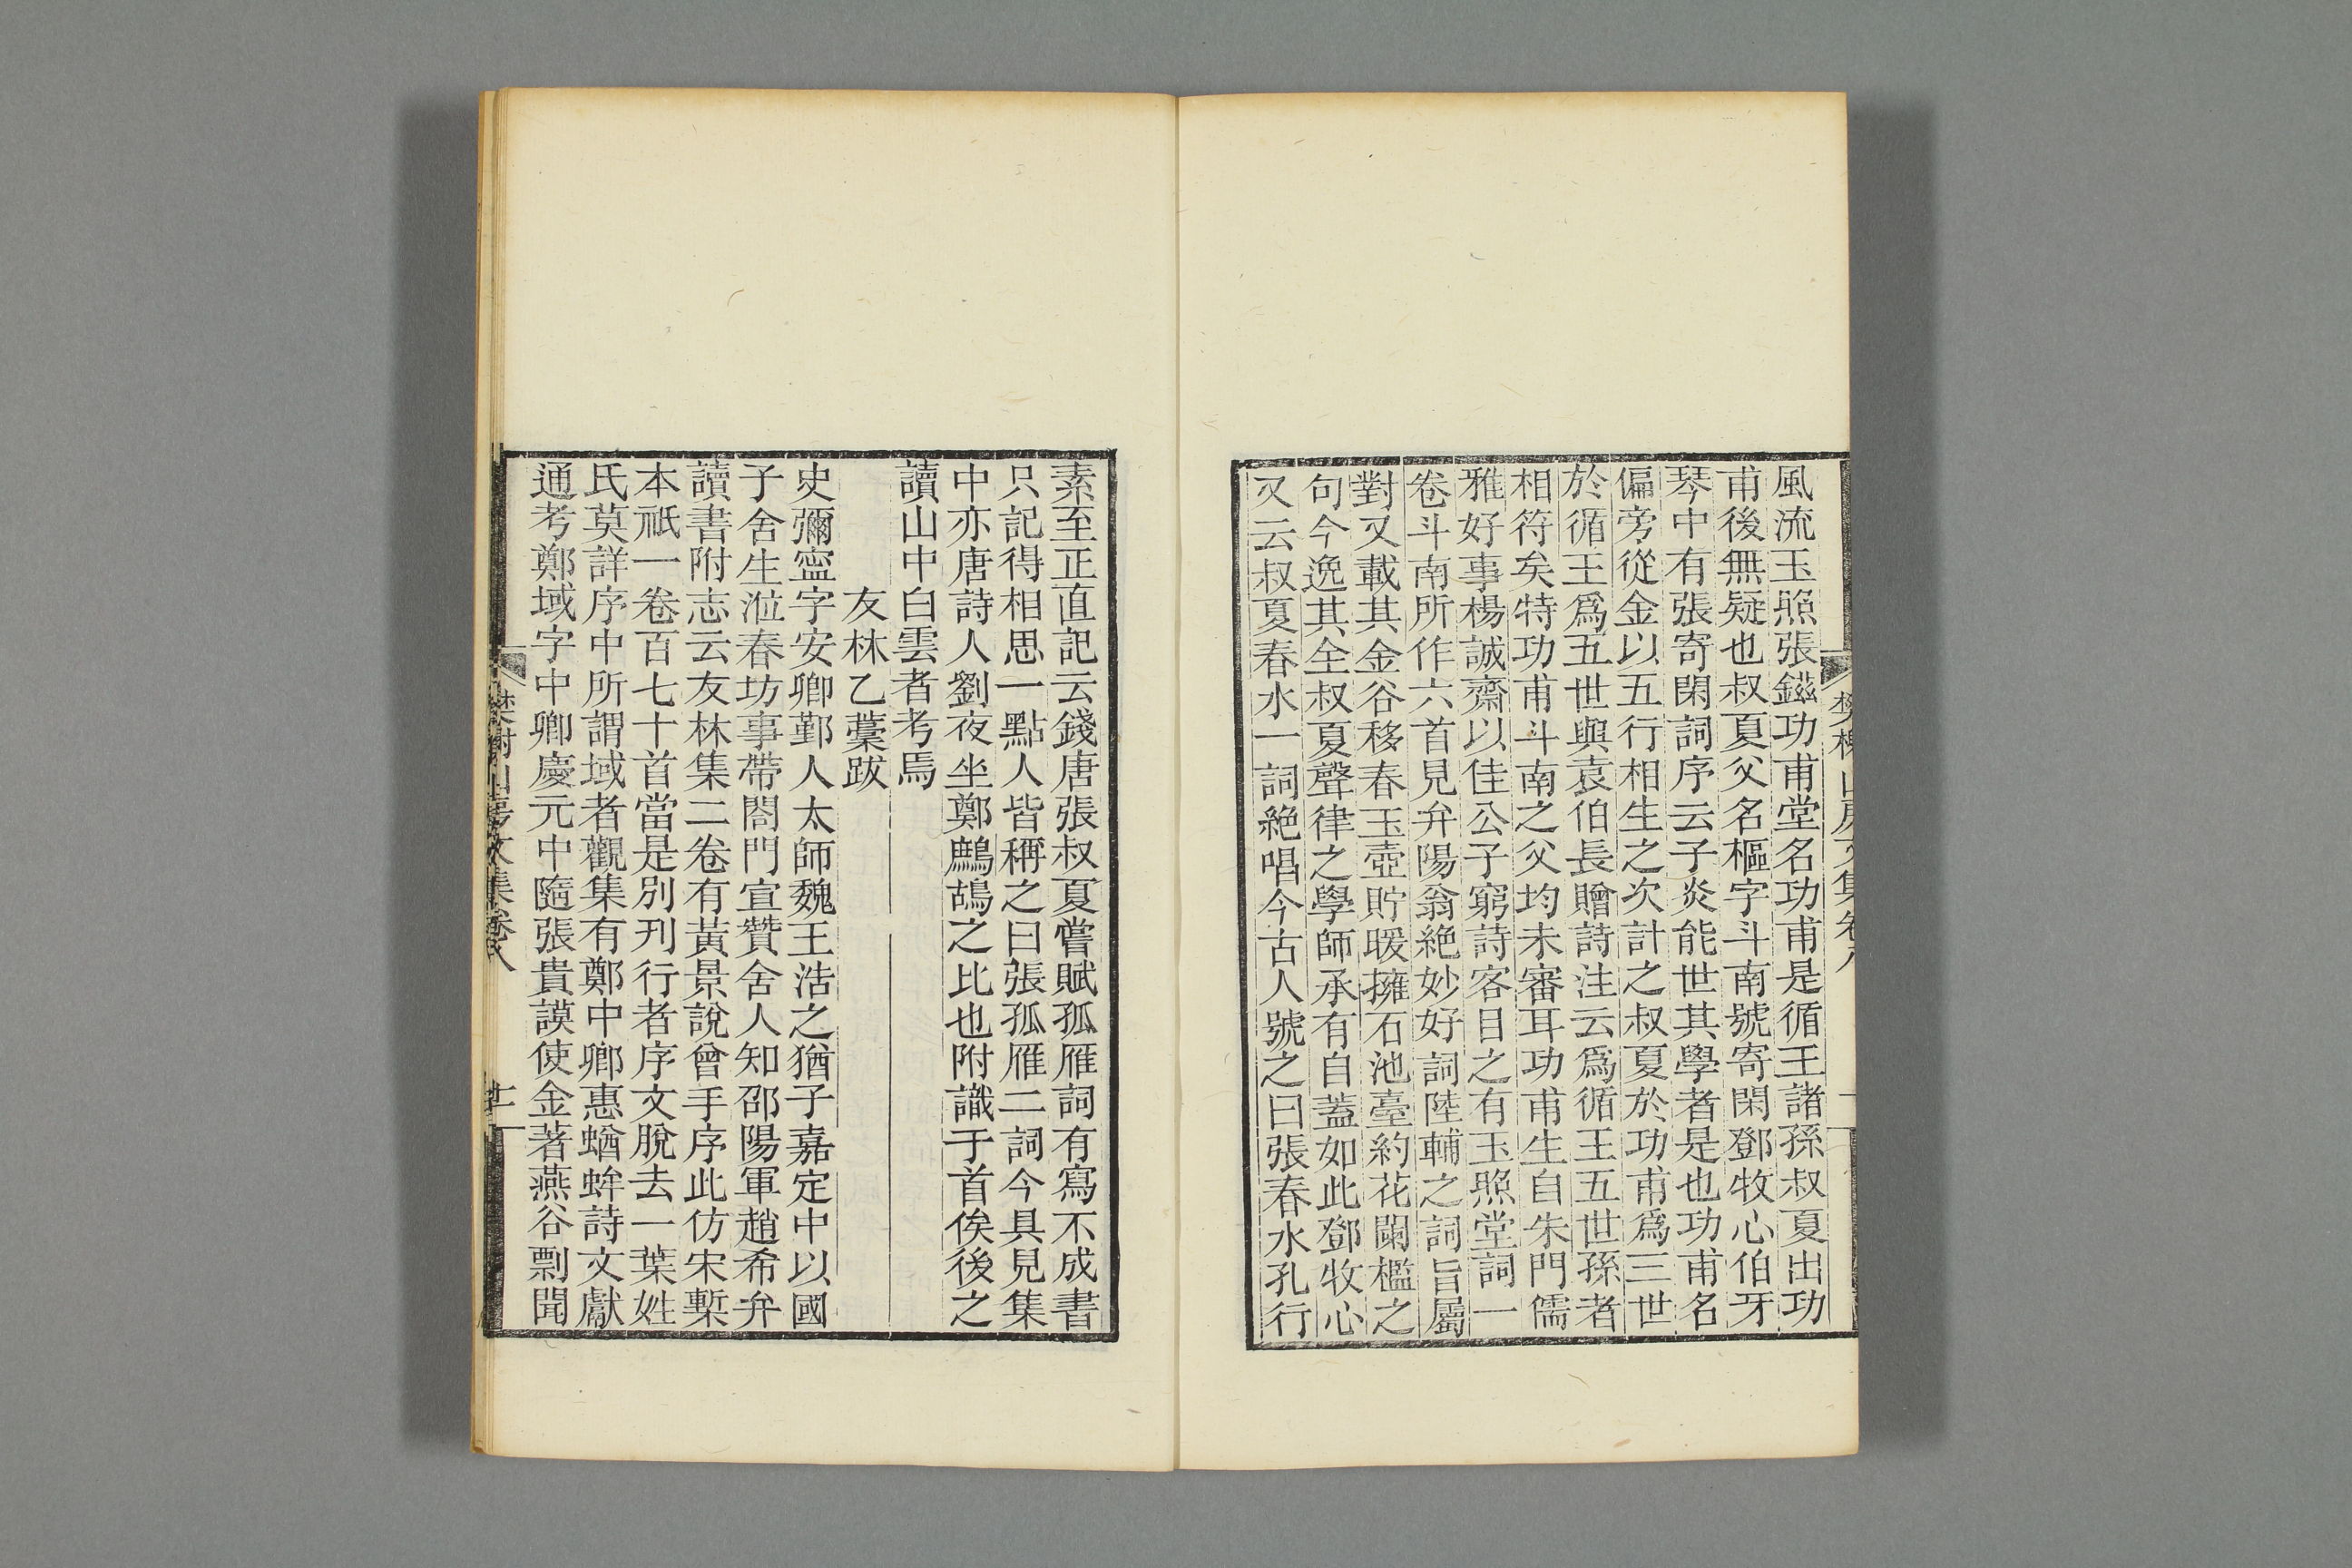 風流玉照張鎡功甫堂名功甫是循王諸孫叔夏出功
甫後無疑也叔夏父名樞字斗南號寄閑鄧牧心伯牙
琴中有張寄閑詞序云子炎能世其學者是也功甫名
偏旁從金以五行相生之次計之叔夏於功甫爲三世
於循王爲五世與袁伯長贈詩注云爲循王五世孫者
相符矣特功甫斗南之父均未審耳功甫生自朱門儒
雅好事楊誠齋以佳公子窮詩客目之有玉照堂詞一
卷斗南所作六首見弁陽翁絶妙好詞陸輔之詞旨屬
對又載其金谷移春玉壺貯暖擁石池臺約花闌檻之
句今逸其全叔夏聲律之學師承有自蓋如此鄧牧心
又云叔夏春水一詞絶唱今古人號之曰張春水孔行
素至正直記云錢唐張叔夏嘗賦孤雁詞有寫不成書
只記得相思一點人皆稱之曰張孤雁二詞今具見集
中亦唐詩人劉夜坐鄭鷓鴣之比也附識于首俟後之
讀山中白雲者考焉
友林乙藁跋
史彌寍字安卿鄞人太師魏王浩之猶子嘉定中以國
子舍生涖春坊事帶閤門宣贊舍人知邵陽軍趙希弁
讀書附志云友林集二卷有黃景說曾手序此仿宋槧
本祇一卷百七十首當是別刊行者序文脫去一葉姓
氏莫詳序中所謂域者觀集有鄭中卿惠蝤蛑詩文獻
通考鄭域字中卿慶元中隨張貴謨使金著燕谷剽聞
樊榭山房文集卷八